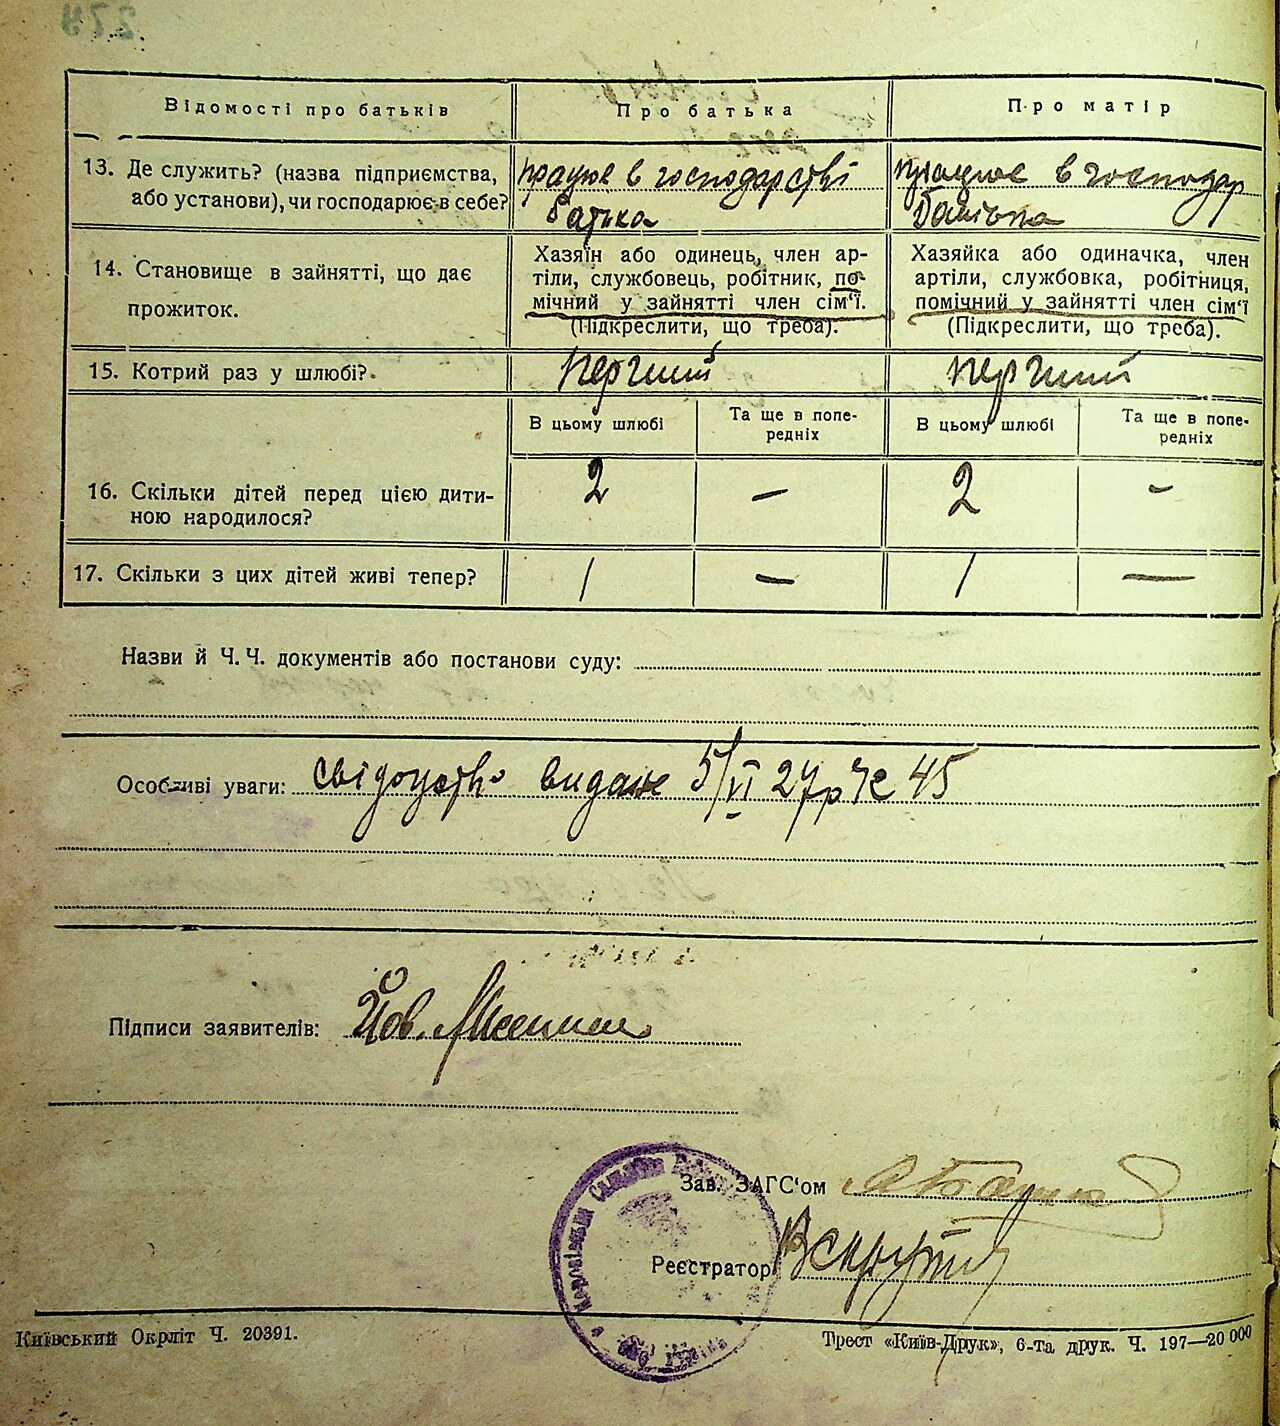 274
Відомості про батьків
Про батька
Про матір
13. Де служить? (назва підприємства,
або установи), чи господарює в себе?
працює в господарстві
батька
працює в господар
батька
14. Становище в зайнятті, що дає
прожиток.
Хазяїн або одинець, член ар-
тіли, службовець, робітник, по-
мічний у зайнятті член сім‘ї.
(Підкреслити, що треба).
Хазяйка або одиначка, член
артіли, службовка, робітниця,
помічний у зайнятті член сім‘ї
(Підкреслити, що треба).
15. Котрий раз у шлюбі?
перший
перший
В цьому шлюбі
Та ще в попе-
редніх
В цьому шлюбі
Та ще в попе-
редніх
16. Скільки дітей перед цією дити-
ною народилося?
2 — 2 -
17. Скільки з цих дітей живі тепер?
1 — 1 —
Назви й Ч. Ч. документів або постанови суду:
Особливі уваги: свідоцтво видане 5/VI 27р № 45
Підписи заявителів: Йов.
Зав. ЗАГС‘ом
Реєстратор
Київський Окрліт Ч. 20391.
Трест «Київ-Друк», 6-та друк. Ч. 197—20 000